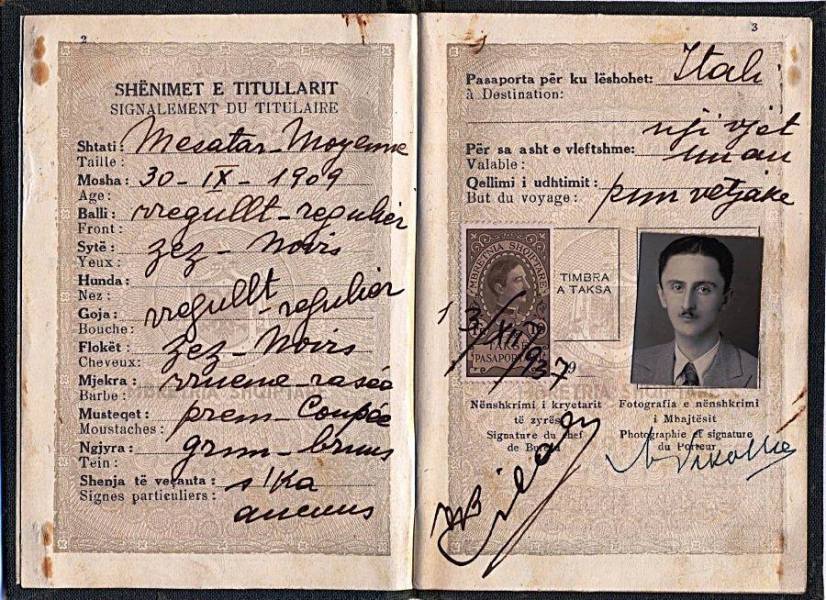 2
SHËNIMET E TITULLARIT
SIGNALEMENT DU TITULAIRE
Shtati: Mesatar - Moyenne
Taille:
Mosha: 30 - IX - 1909
Age:
Balli: rregullt - regulier
Front:
Sytë: zez - Noirs
Yeux:
Hunda:
Nez: rregullt - regulier
Goja:
Bouche:
Flokët: zez - Noirs
Cheveux:
Mjekra: rrueme - rasée
Barbe:
Musteqet: prem - Coupée
Moustaches:
Ngjyra: grun - bruns
Tein:
Shenja të veçauta: s'ka
Signes particuliers: aucuns
3
Pasaporta për ku lëshohet: Itali
à Destination:
nji vjet
Për sa asht e vleftshme: un an
Valable:
Qellimi i udhtimit: pun vetjake
But du voyage:
MBRETNIA SHQIPTARE
TAKSË
PASAPORTASH
13/XII/937
TIMBRA
A TAKSA
9
Nënshkrimi i kryetarit
të zyrës
Signature du chef
de Bureau
Fotografia e nënshkrimi
i Mbajtësit
Photographie et signature
du Porteur
MBRETNIA SHQIPTARE